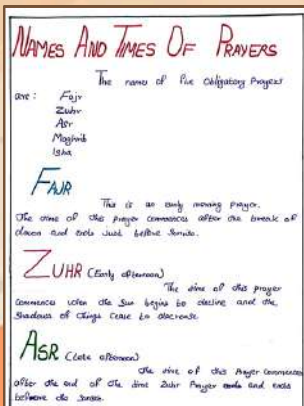 NAMES AND TIMES OF PRAYERS
The names of five Obligatory Prayers
are : Fajr
Zuhr
Asr
Maghrib
Isha
FAJR
This is an early morning prayer.
The time of this prayer commences after the break of
dawn and ends just before Sunrise.
ZUHR (Early afternoon)
The time of this prayer
commences when the Sun begins to decline and the
Shadows of things cease to decrease
ASR (Late afternoon)
The time of this Prayer commences
after the end of the time Zuhr Prayer and ends
before the Sunset.